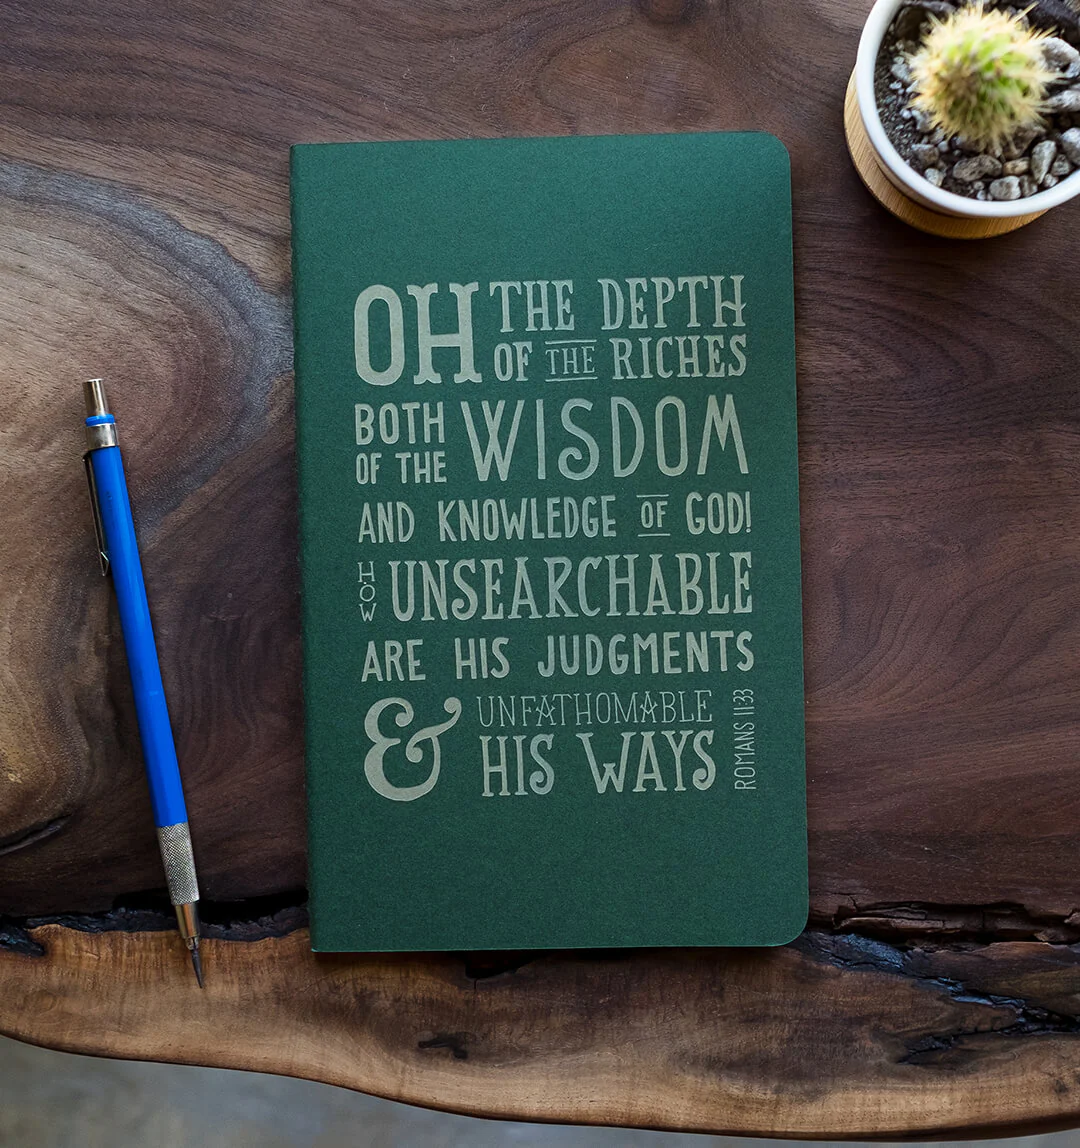 OH THE DEPTH
OF THE RICHES
BOTH
OF THE WISDOM
AND KNOWLEDGE OF GOD!
HOW UNSEARCHABLE
ARE HIS JUDGMENTS
& UNFATHOMABLE
HIS WAYS
ROMANS 11:33